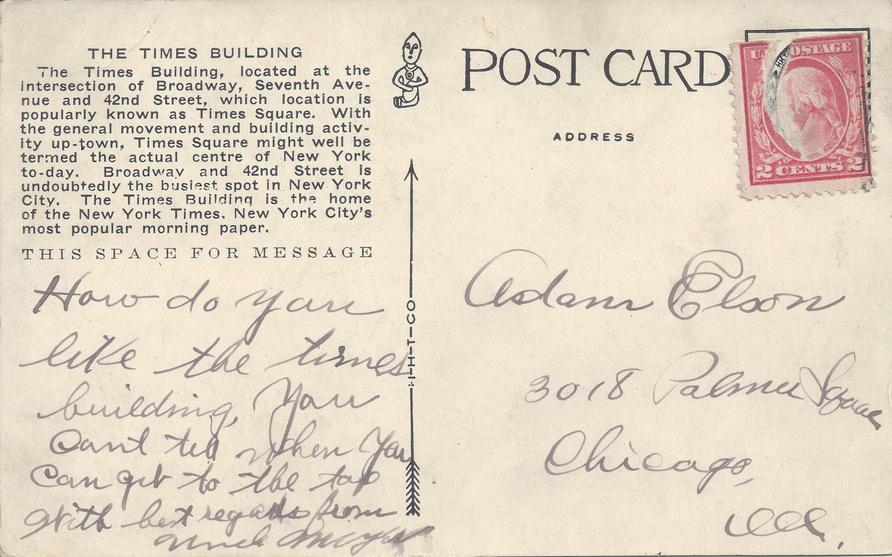 THE TIMES BUILDING
The Times Building, located at the
intersection of Broadway, Seventh Ave-
nue and 42nd Street, which location is
popularly known as Times Square. With
the general movement and building activ-
ity up-town, Times Square might well be
termed the actual centre of New York
to-day. Broadway and 42nd Street is
undoubtedly the busiest spot in New York
City. The Times Building is the home
of the New York Times, New York City's
most popular morning paper.
THIS SPACE FOR MESSAGE
How do you
like the times
building, You
Cant tell when You
Can get to the top
With best regards from
Uncle
H-T-CO
POST CARD
ADDRESS
POSTAGE
2 CENTS 2
Adam Elson
3018 Palmer Square
Chicago,
Ill.